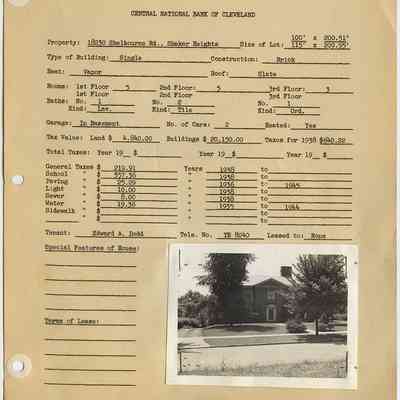 CENTRAL NATIONAL BANK OF CLEVELAND
100' x 200.51'
Property: 18030 Shelbourne Rd., Shaker Heights Size of Lot: 115' x 200.95'
Type of Building: Single Construction: Brick
Heat: Vapor Roof: Slate
Rooms: 1st Floor 5 2nd Floor: 5 3rd Floor: 3
1st Floor 2nd Floor 3rd Floor
Baths: No. 1 No. 2 No. 1
Kind: Lav. Kind: Tile Kind: Ord.
Garage: In Basement No. of Cars: 2 Heated: Yes
Tax Value: Land $ 4,840.00 Buildings $ 20,150.00 Taxes for 1938 $640.22
Total Taxes: Year 19__$ Year 19__$ Year 19__$
General Taxes $ 219.91 Years 1938 to
School " $ 357.38 " 1938 to
Paving " $ 25.29 " 1936 to 1945
Light " $ 10.00 " 1938 to
Sewer " $ 8.00 " 1938 to
Water " $ 19.36 " 1935 to 1944
Sidewalk " $ " to
" $ " to
Tenant: Edward A. Dodd Tele. No. YE 8240 Leased to: None
Special Features of House:
Terms of Lease: